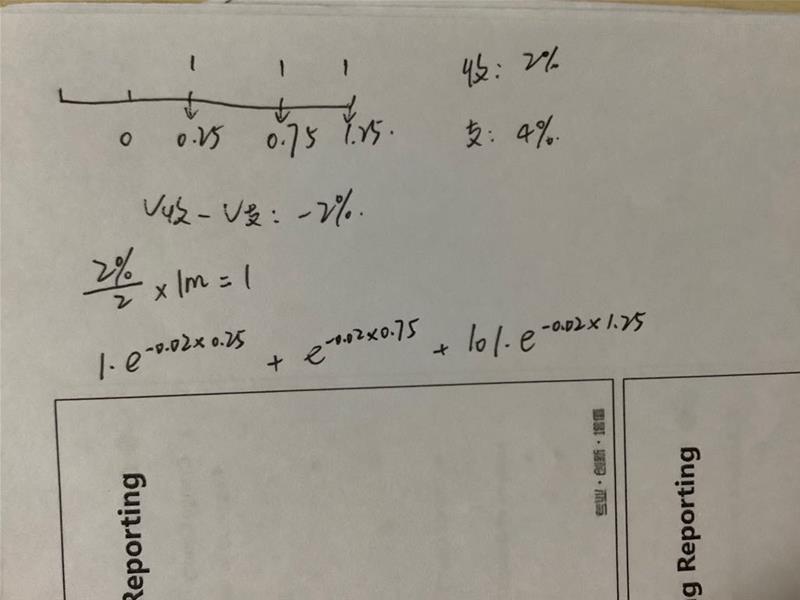 1 1 1
0 0.25 0.75 1.25.
收: 2%
支: 4%.
V收 - V支: -2%.
2%/2 × 1m = 1
1·e^-0.02×0.25 + e^-0.02×0.75 + 101·e^-0.02×1.25
Reporting
g Reporting